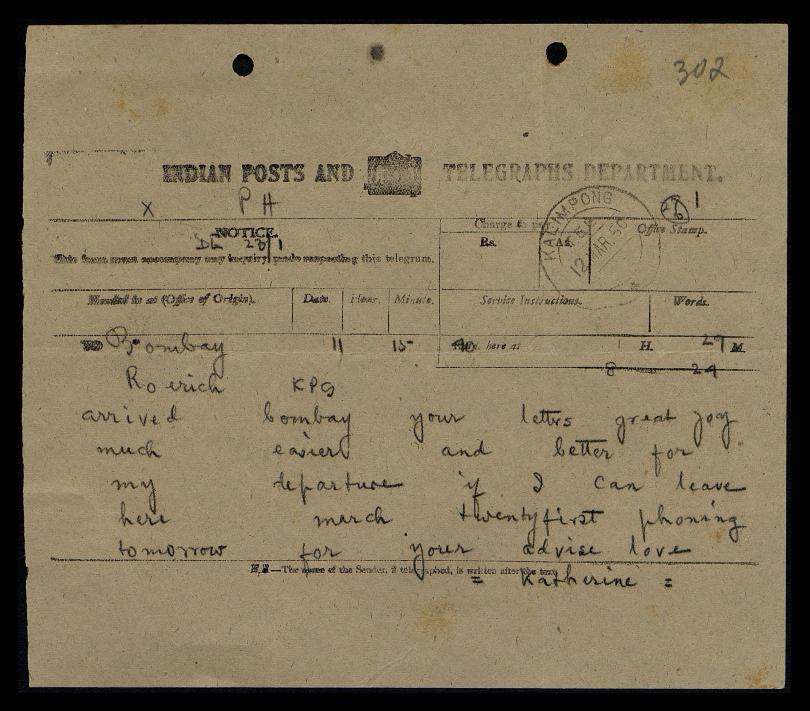 302
INDIAN POSTS AND TELEGRAPHS DEPARTMENT.
X PH
NOTICE.
Charge to
Office Stamp.
KALIMPONG
12 MR 56
Rs. As.
This form must accompany any inquiry made respecting this telegram.
Handed in at (Office of Origin). Date. Hour. Minute. Service Instructions. Words.
Bombay 11 15 here at H. M.
8 29
Roerich KPG
arrived bombay your lettrs great joy
much easier and better for
my departure if I can leave
here march twentyfirst phoning
tomorrow for your advise love
N.B.—The name of the Sender, if telegraphed, is written after the text
= Katherine =